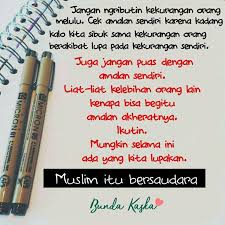 Jangan ngributin kekurangan orang
melulu. Cek amalan sendiri karena kadang
kalo kita sibuk sama kekurangan orang
berakibat lupa pada kekurangan sendiri.
Juga jangan puas dengan
amalan sendiri.
Liat-liat kelebihan orang lain
kenapa bisa begitu
amalan akheratnya.
Ikutin.
Mungkin selama ini
ada yang kita lupakan.
Muslim itu bersaudara
Bunda Kaska
MICRON
MICRON